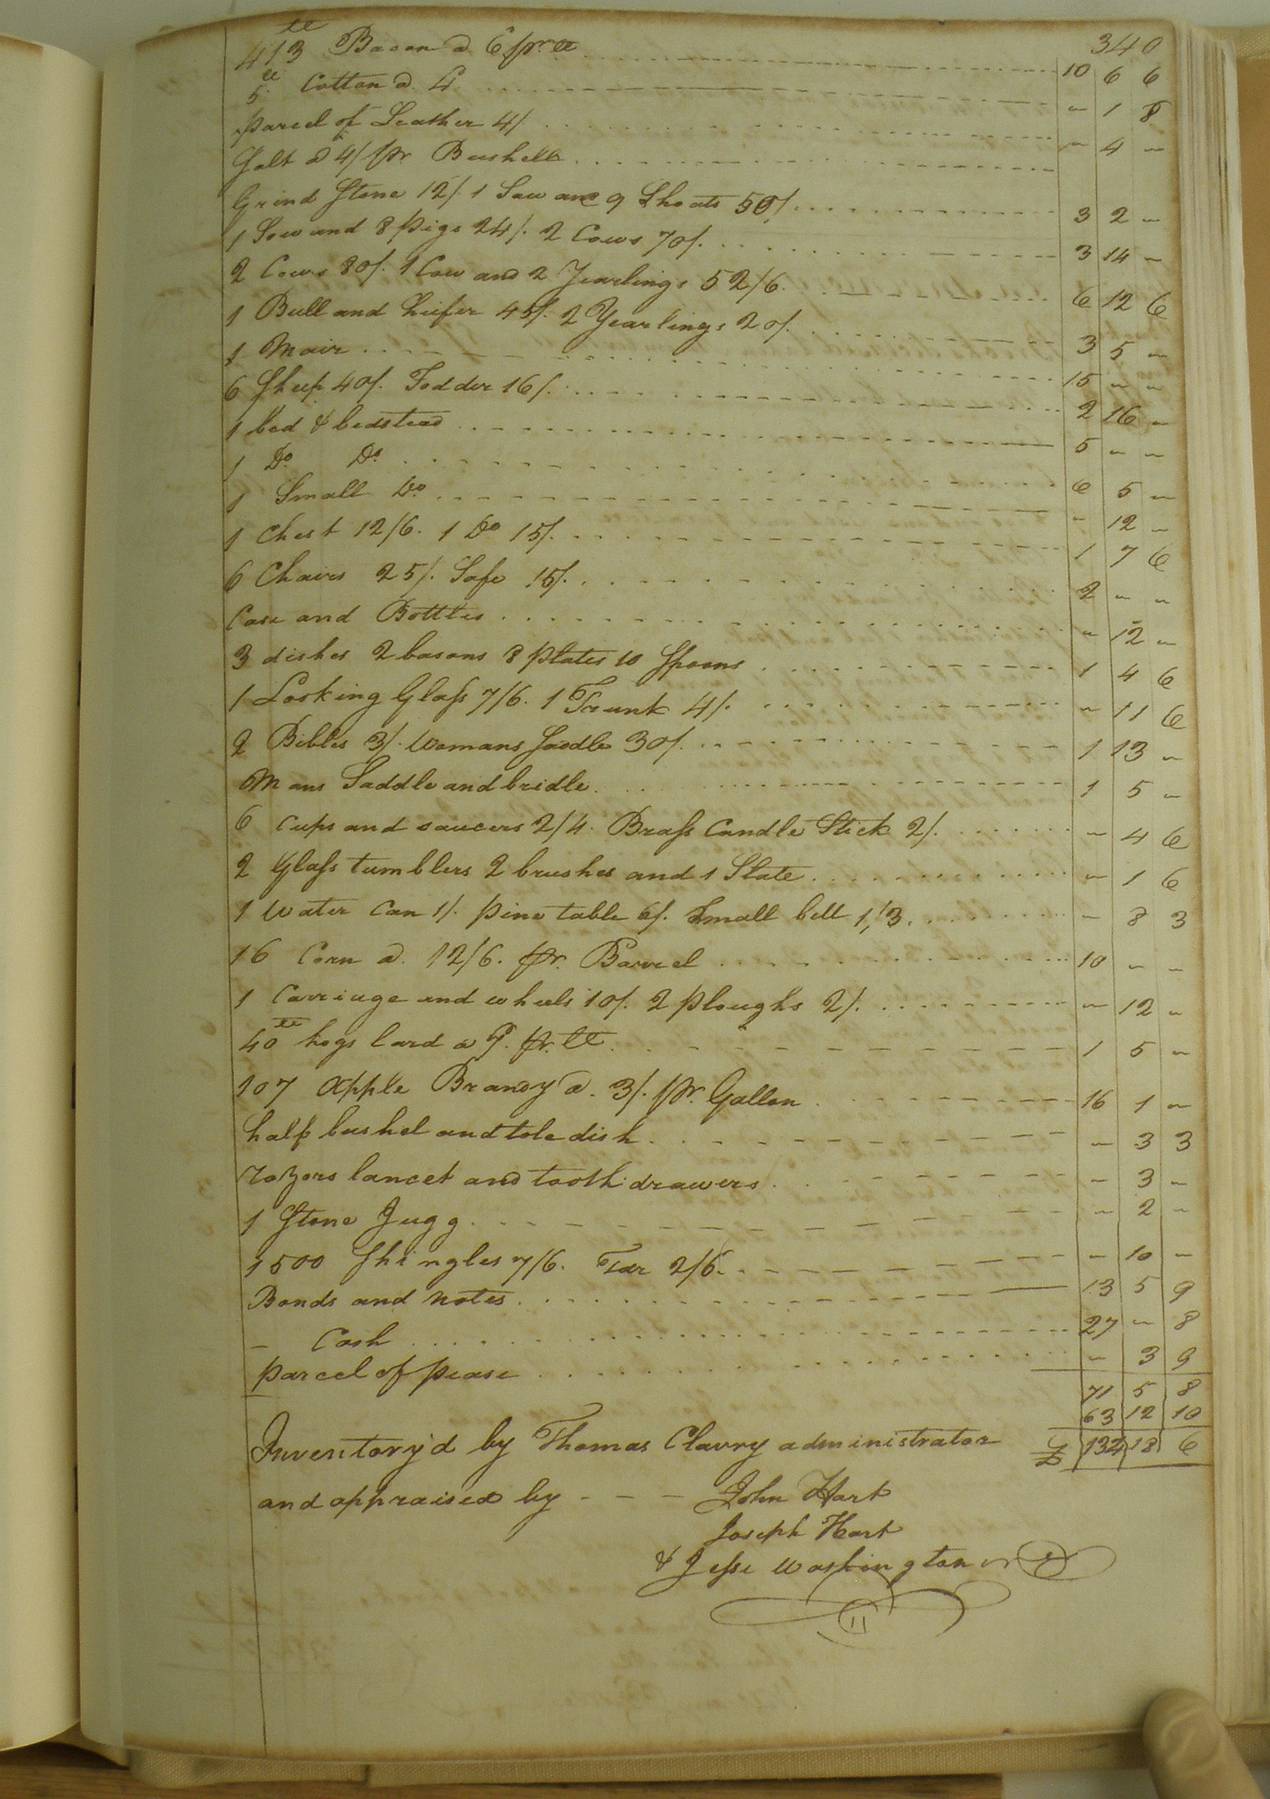 340
413 ℔ Bacon @ 6 pr ℔ 10 6 6
5 ℔ Cotton @ 4 - 1 8
parcel of Leather 4/ - 4 -
Salt @ 4/ pr Bushell
Grind Stone 12/. 1 Sow and 9 Shoats 50/. 3 2 -
1 Sow and 8 pigs 24/. 2 Cows 70/. 3 14 -
2 Cows 80/. 1 Cow and 2 Yearlings 52/6. 6 12 6
1 Bull and heifer 45/. 2 Yearlings 20/. 3 5 -
1 Mair 15 - -
6 Sheep 40/. Fodder 16/. 2 16 -
1 bed & bedstead 5 - -
1 Do. Do. 6 5 -
1 Small Do. - 12 -
1 Chest 12/6. 1 Do 15/. 1 7 6
6 Chairs 25/. Safe 15/. 2 - -
Case and Bottles - 12 -
3 dishes 2 basons 8 plates 10 Spoons 1 4 6
1 Looking Glass 7/6. 1 Trunk 4/. - 11 6
2 Bibles 3/. Womans Saddle 30/. 1 13 -
Mans Saddle and bridle 1 5 -
6 Cups and saucers 2/4. Brass Candle Stick 2/. - 4 6
2 Glass tumblers 2 brushes and 1 Slate - 1 6
1 Water Can 1/. pine table 6/. Small bell 1/3. - 8 3
16 Corn @. 12/6. pr. Barrel 10 - -
1 Carriage and wheels 10/. 2 ploughs 2/. - 12 -
40 ℔ hogs lard @ 9. pr. ℔ 1 5 -
107 Apple Brandy @. 3/. pr. Gallon 16 1 -
half bushel and tole dish - 3 3
razors lancet and tooth drawers - 3 -
1 Stone Jugg - 2 -
1500 Shingles 7/6. Tar 2/6. - 10 -
Bonds and notes 13 5 9
- Cash 27 - 8
parcel of pease - 3 9
71 5 8
63 12 10
£ 134 18 6
Inventory'd by Thomas Clavry administrator
and appraised by - - - John Hart
Joseph Hart
& Jesse Washington